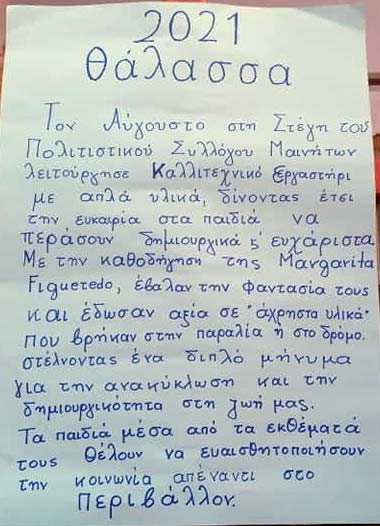 2021
Θάλασσα
Τον Αύγουστο στη Στέγη του
Πολιτιστικού Συλλόγου Μαινήτων
λειτούργησε Καλλιτεχνικό Εργαστήρι
με απλά υλικά, δίνοντας έτσι
την ευκαιρία στα παιδιά να
περάσουν δημιουργικά ς' ευχάριστα
Με την καθοδήγηση της Margarita
Figueredo, έβαλαν την φαντασία τους
και έδωσαν αξία σε "άχρηστα υλικά"
που βρήκαν στην παραλία ή στο δρόμο.
στέλνοντας ένα διπλό μήνυμα
για την ανακύκλωση και την
δημιουργικότητα στη ζωή μας.
Τα παιδιά μέσα από τα εκθέματά
τους θέλουν να ευαισθητοποιήσουν
την κοινωνία απέναντι στο
Περιβάλλον.